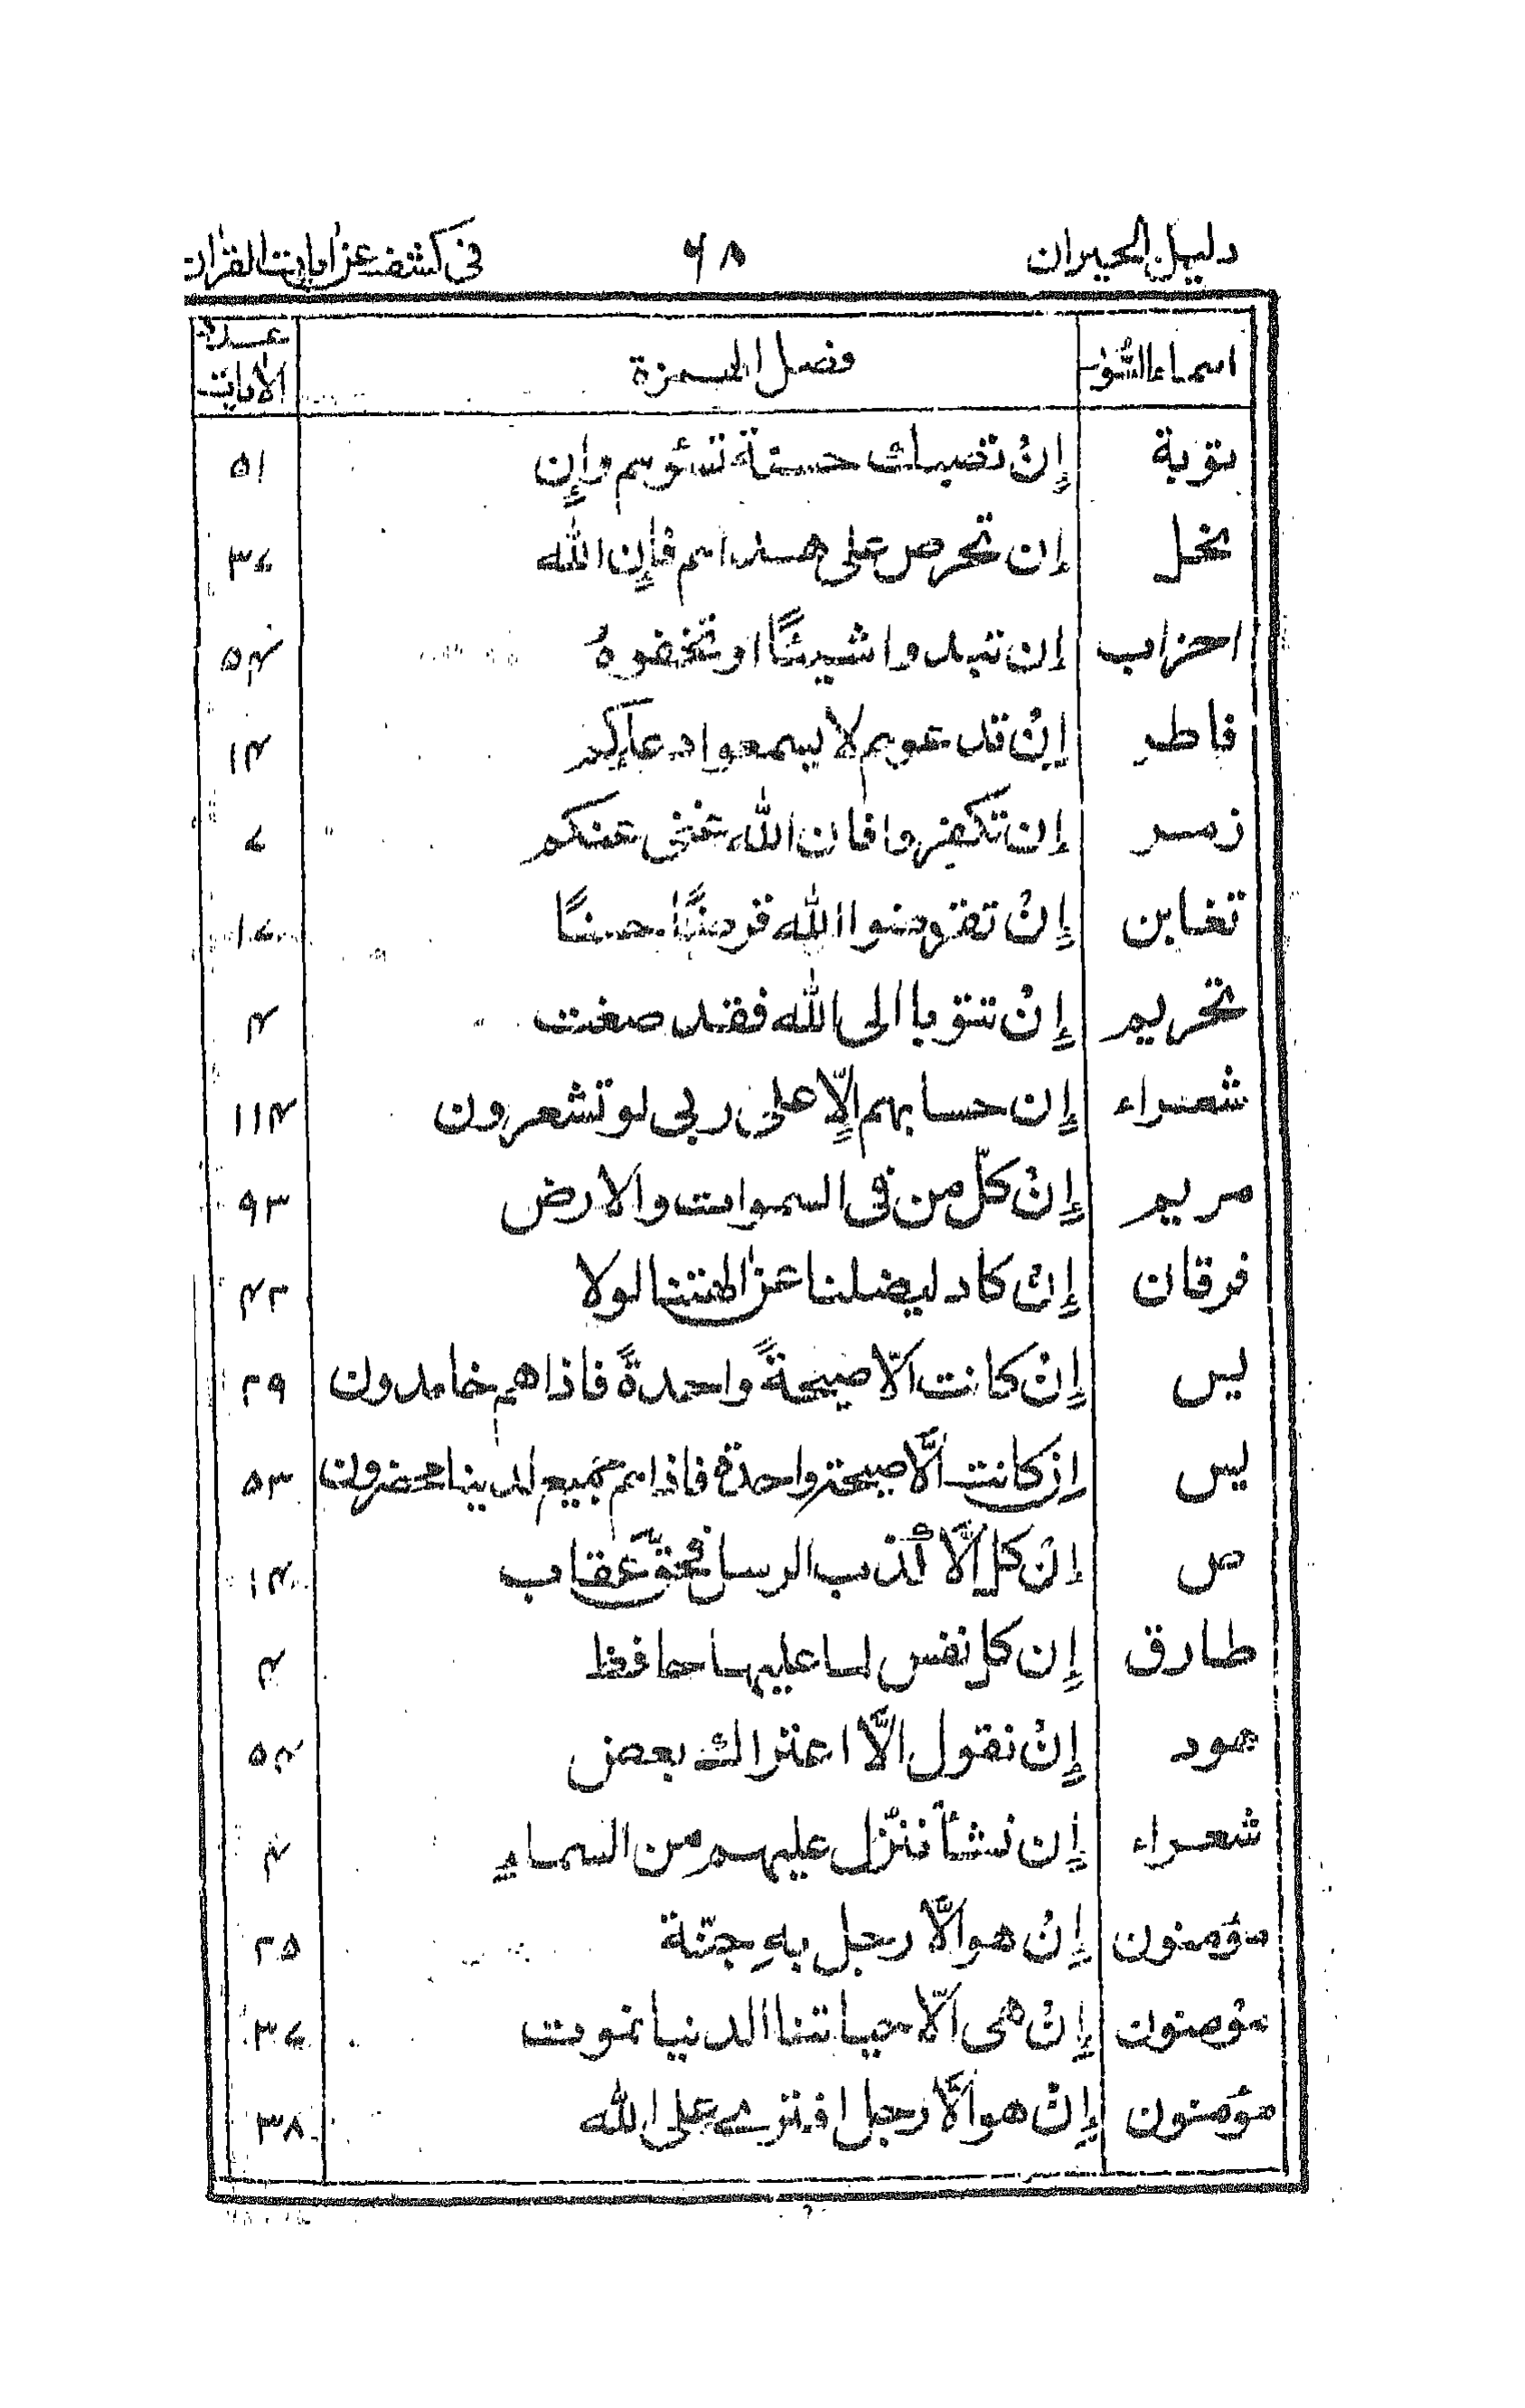 دليل الحيران ٦٨ فی کشف عن اٰیات القراٰن
اسماء السُّوَر فصل الهمزة عدد الاٰیات
توبة إِنْ تصبك حسنة تسئوهم وإن ۵۱
نحل إن تحرص على هداهم فإن الله ٣٧
احزاب إن تبدوا شيئًا او تخفوهُ ۵۴
فاطر إنْ تدعوهم لا يسمعوا دعاءكم ۱۴
زمر إن تكفروا فان الله غنى عنكم ٧
تغابن إِنْ تقرضوا الله قرضًا حسنًا ١٧
تحريم إِنْ تتوبا الى الله فقد صغت ۴
شعراء إن حسابهم إلّا على ربى لو تشعرون ۱۱۴
مريم إِنْ كلّ من فى السموات والارض ٩٣
فرقان إن كاد ليضلنا عن اٰلهتنا لولا ۴۲
يس إِنْ كانت الّا صيحةً واحدةً فاذا هم خامدون ٢٩
يس إن كانت الَّا صيحة واحدة فاذا هم جميع لدينا محضرون ۵۳
ص إنْ كل إلَّا كذب الرسل فحقّ عقاب ۱۴
طارق إن كل نفس لما عليها حافظ ۴
هود إِنْ نقول الَّا اعتراك بعض ۵۴
شعراء إن نشأ ننزّل عليهم من السماءِ ۴
مؤمنون إِنْ هو الَّا رجل بهِ جنّة ٢۵
مؤمنون إِنْ هى الّا حياتنا الدنيا نموت ٣٧
مؤمنون إِنْ هو الَّا رجل افترى على الله ٣٨